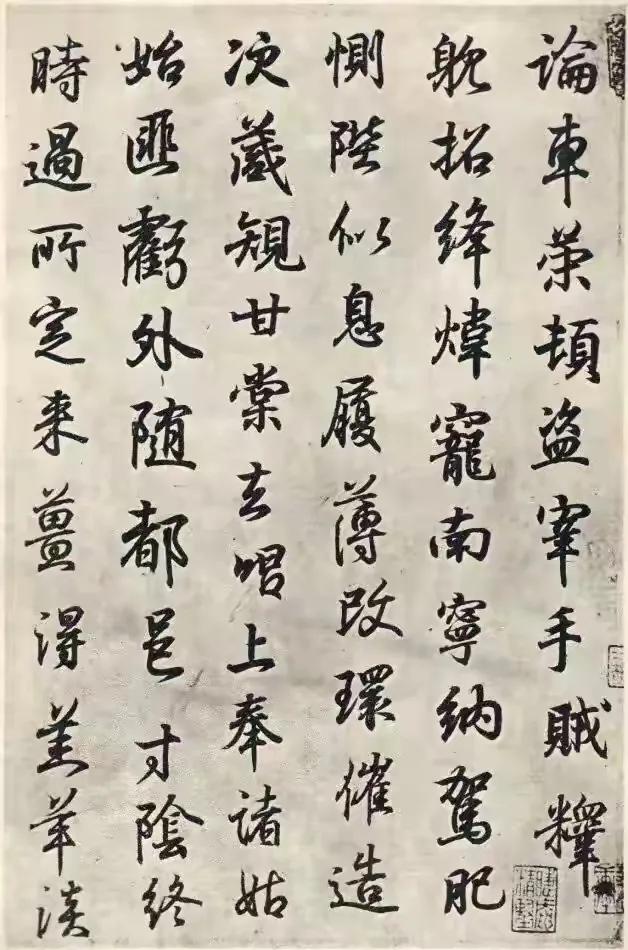 論車荣頓盗宰手賊釋
躭招絳煒寵南寧納駕肥
惻陛似息履薄改環催造
次蔵規甘棠去唱上奉諸姑
始匪虧外随都邑寸陰終
時過所定来薑得羔羊淡